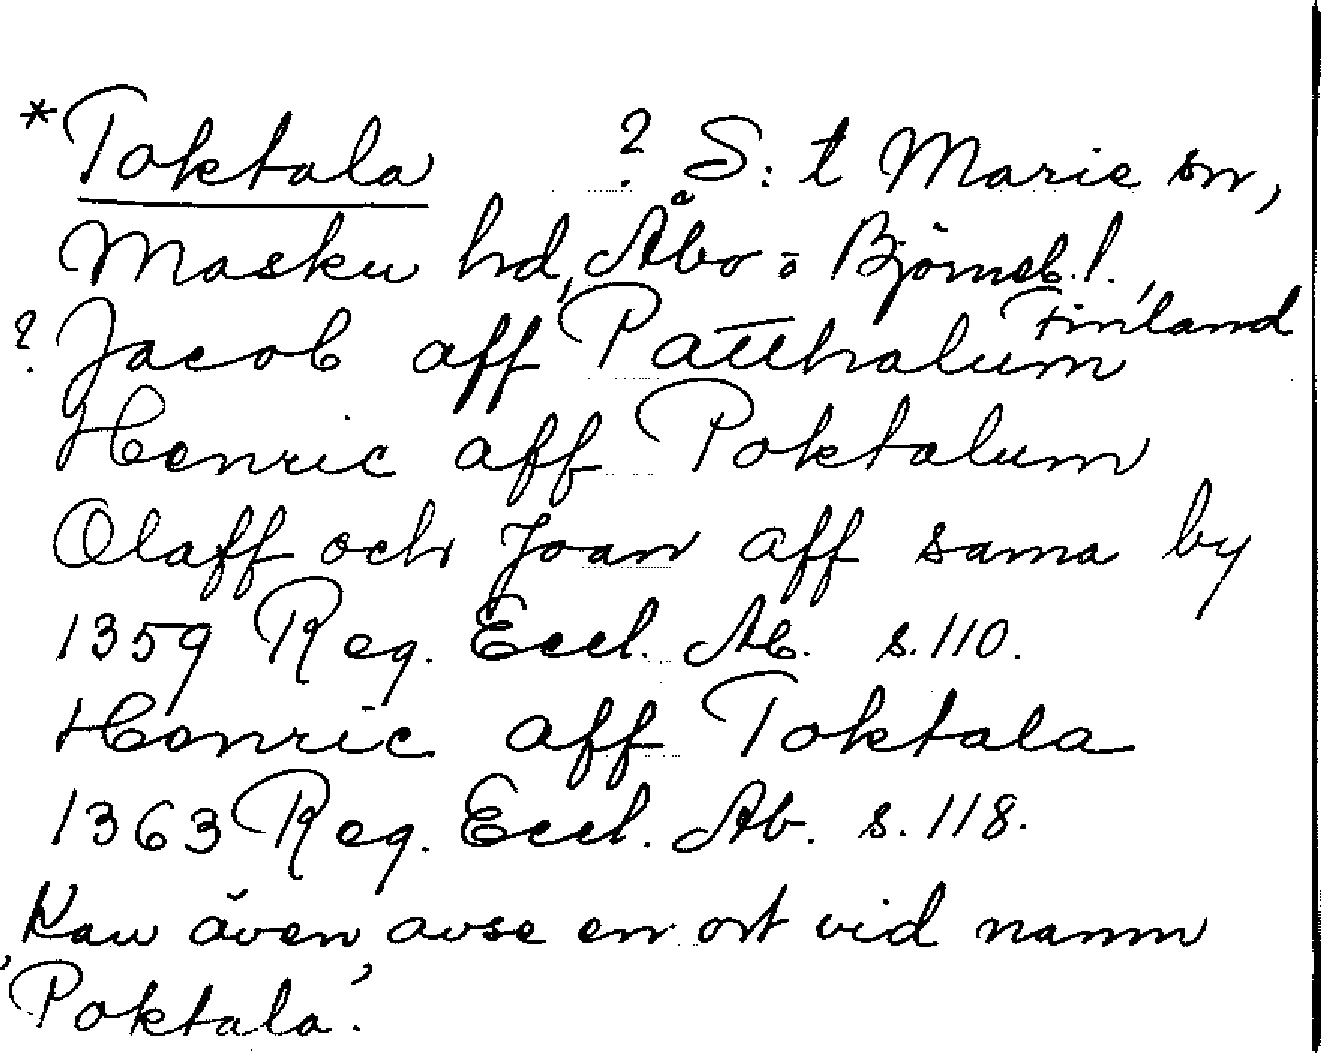 *Toktala ? S:t Marie sn,
Masku hd, Åbo o Björneb. l.,
Finland
? Jacob aff Patthalum
Henric aff Poktalum
Olaff och Joan aff sama by
1359 Reg. Eccl. Ab. s. 110.
Henric aff Toktala
1363 Reg. Eccl. Ab. s. 118.
Kan även avse en ort vid namn
'Poktala'.